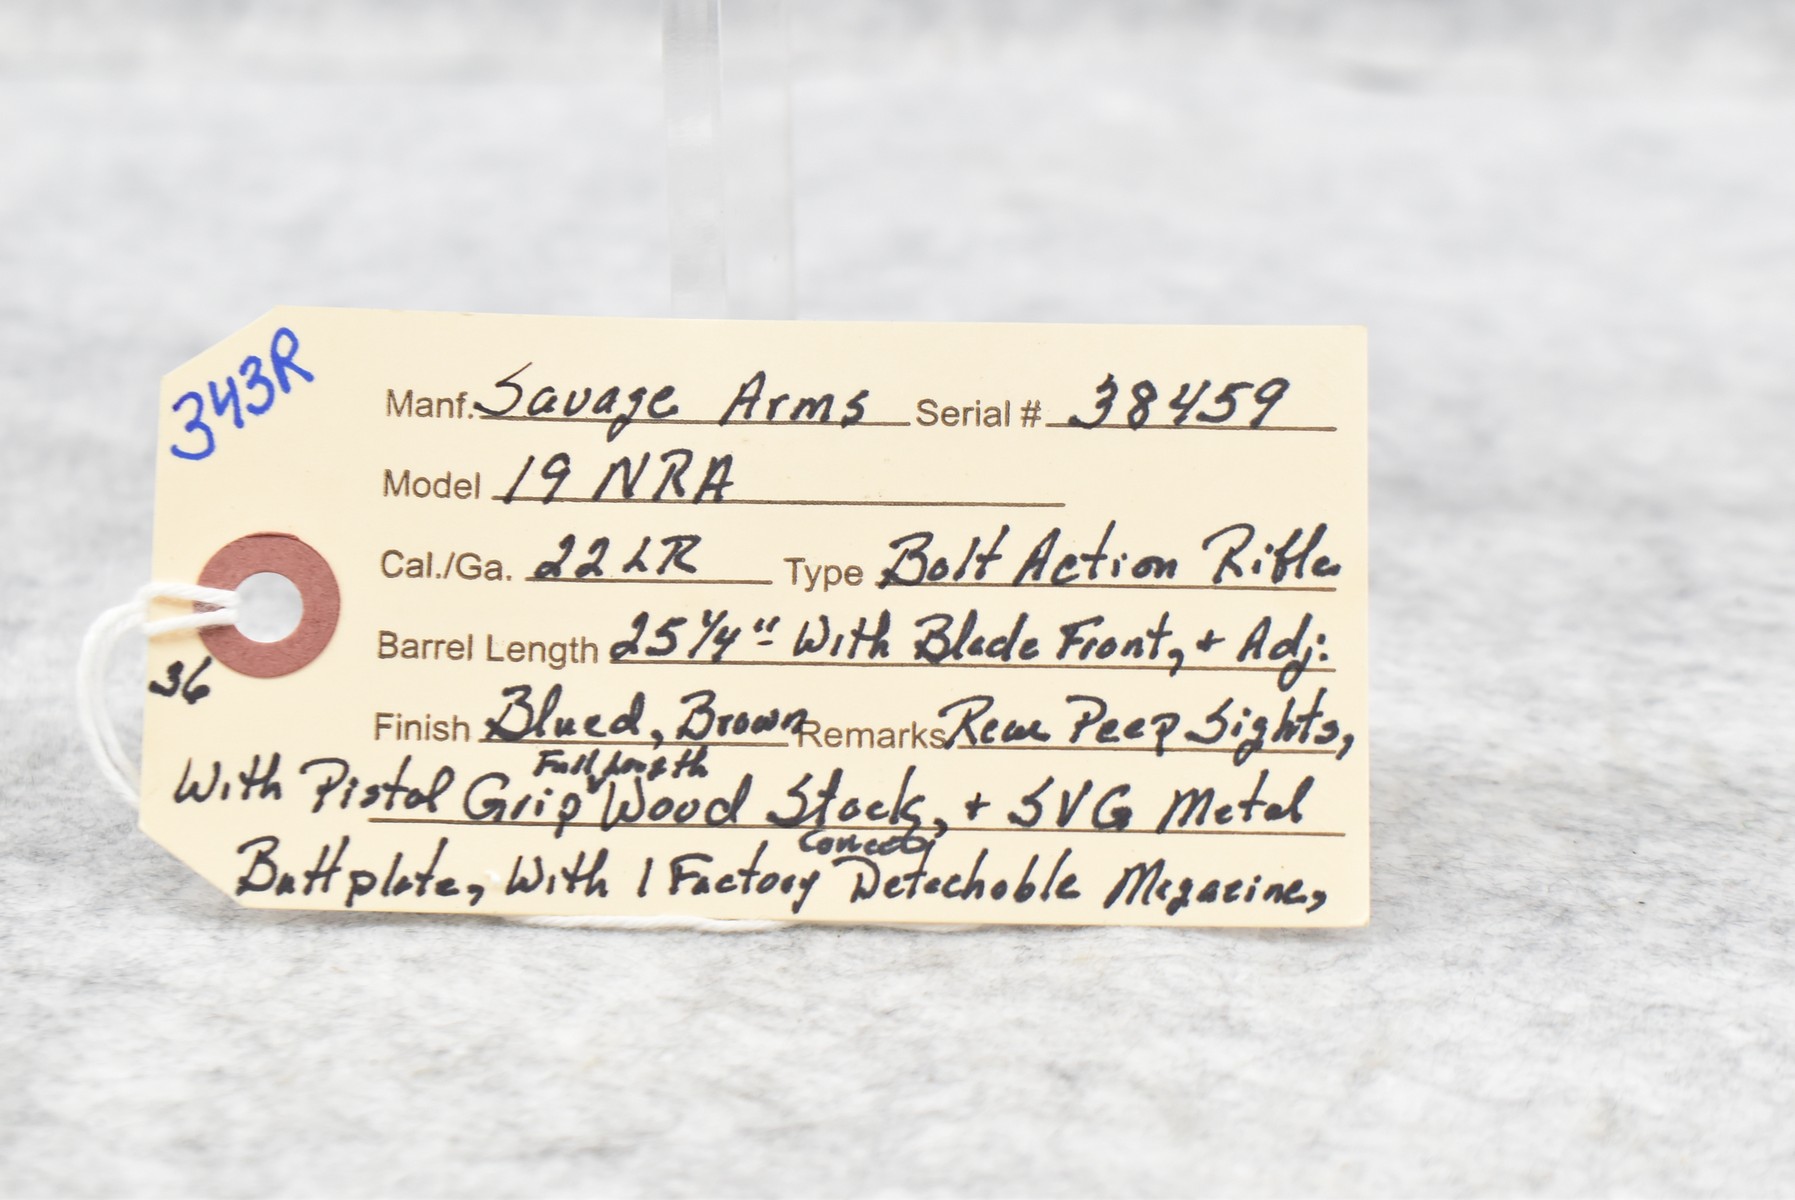 343R
Manf. Savage Arms Serial # 38459
Model 19 NRA
Cal./Ga. 22LR Type Bolt Action Rifle
Barrel Length 25 1/4" With Blade Front, + Adj.
36
Finish Blued, Brown Remarks Rear Peep Sights,
Full Length
With Pistol Grip Wood Stock, + SVG Metal
Correct
Buttplate, With 1 Factory Detachable Magazine,